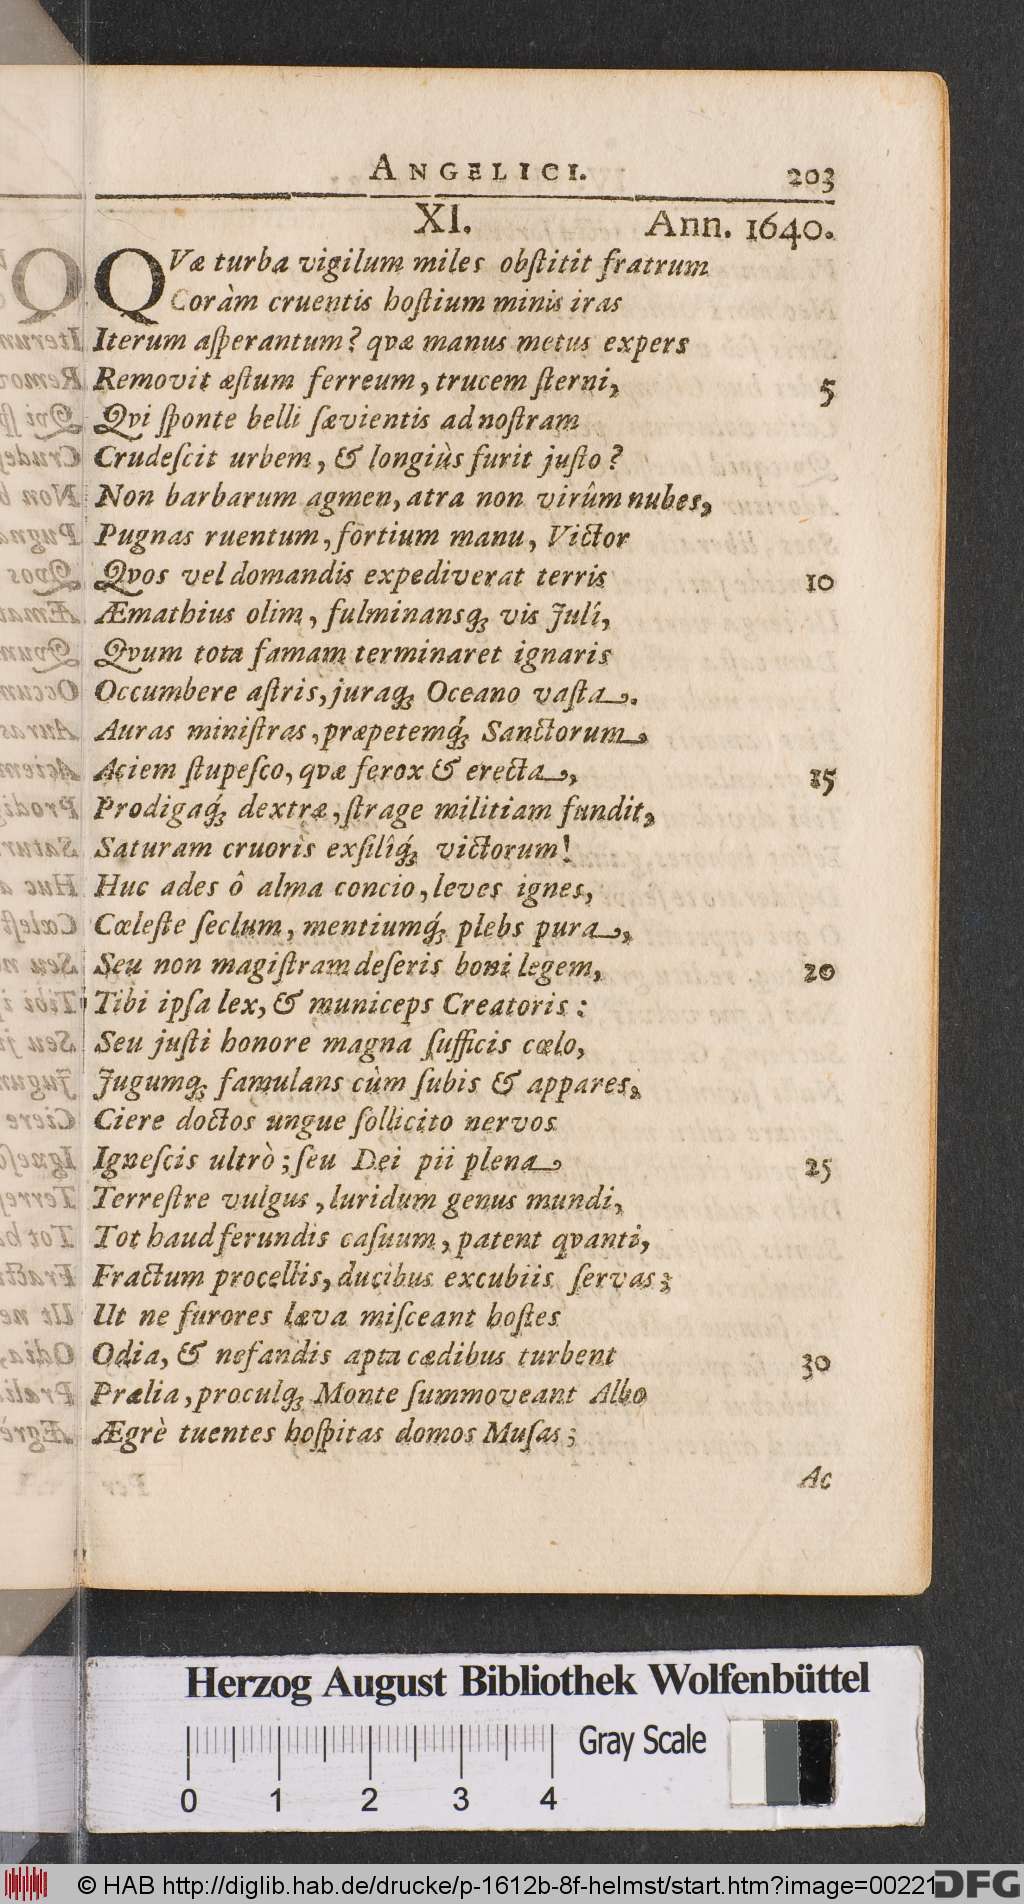 ANGELICI. 203
XI. Ann. 1640.
QVæ turba vigilum miles obſtitit fratrum
Coràm cruentis hoſtium minis iras
Iterum aſperantum? qvæ manus metus expers
Removit æſtum ferreum, trucem ſterni, 5
Qvi ſponte belli ſævientis ad noſtram
Crudeſcit urbem, & longiùs furit juſto?
Non barbarum agmen, atra non virûm nubes,
Pugnas ruentum, fortium manu, Victor
Qvos vel domandis expediverat terris 10
Æmathius olim, fulminansq; vis Julî,
Qvum tota famam terminaret ignaris
Occumbere aſtris, juraq; Oceano vaſta.
Auras miniſtras, præpetemq́; Sanctorum,
Aciem ſtupeſco, qvæ ferox & erecta, 15
Prodigaq́; dextræ, ſtrage militiam fundit,
Saturam cruoris exſilîq́; victorum!
Huc ades ô alma concio, leves ignes,
Cœleſte ſeclum, mentiumq́; plebs pura,
Seu non magiſtram deſeris boni legem, 20
Tibi ipſa lex, & municeps Creatoris:
Seu juſti honore magna ſufficis cœlo,
Jugumq; famulans cùm ſubis & appares,
Ciere doctos ungue ſollicito nervos
Igneſcis ultrò; ſeu Dei pii plena 25
Terreſtre vulgus, luridum genus mundi,
Tot haud ferundis caſuum, patent qvanti,
Fractum procellis, ducibus excubiis ſervas;
Ut ne furores læva miſceant hoſtes
Odia, & nefandis apta cædibus turbent 30
Prælia, proculq; Monte ſummoveant Albo
Ægrè tuentes hoſpitas domos Muſas;
Ac
Herzog August Bibliothek Wolfenbüttel
Gray Scale
0 1 2 3 4
© HAB http://diglib.hab.de/drucke/p-1612b-8f-helmst/start.htm?image=00221
DFG